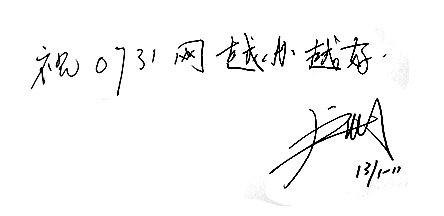 祝0731网越办越好.
13/1-11